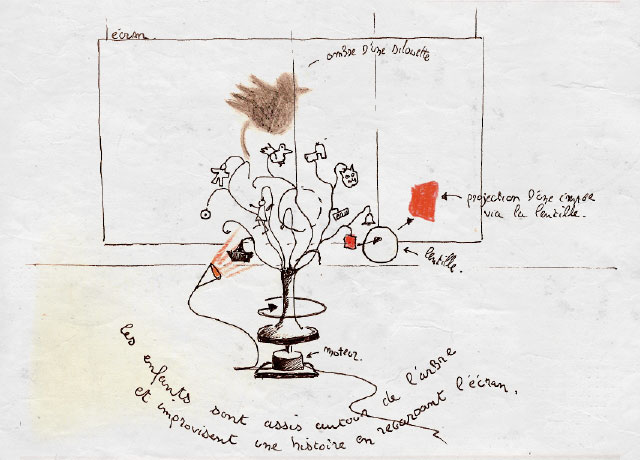 écran.
ombre d'une silouette
projection d'une image
via la lentille.
lentille.
moteur.
les enfants sont assis autour de l'arbre
et improvisent une histoire en regardant l'écran.